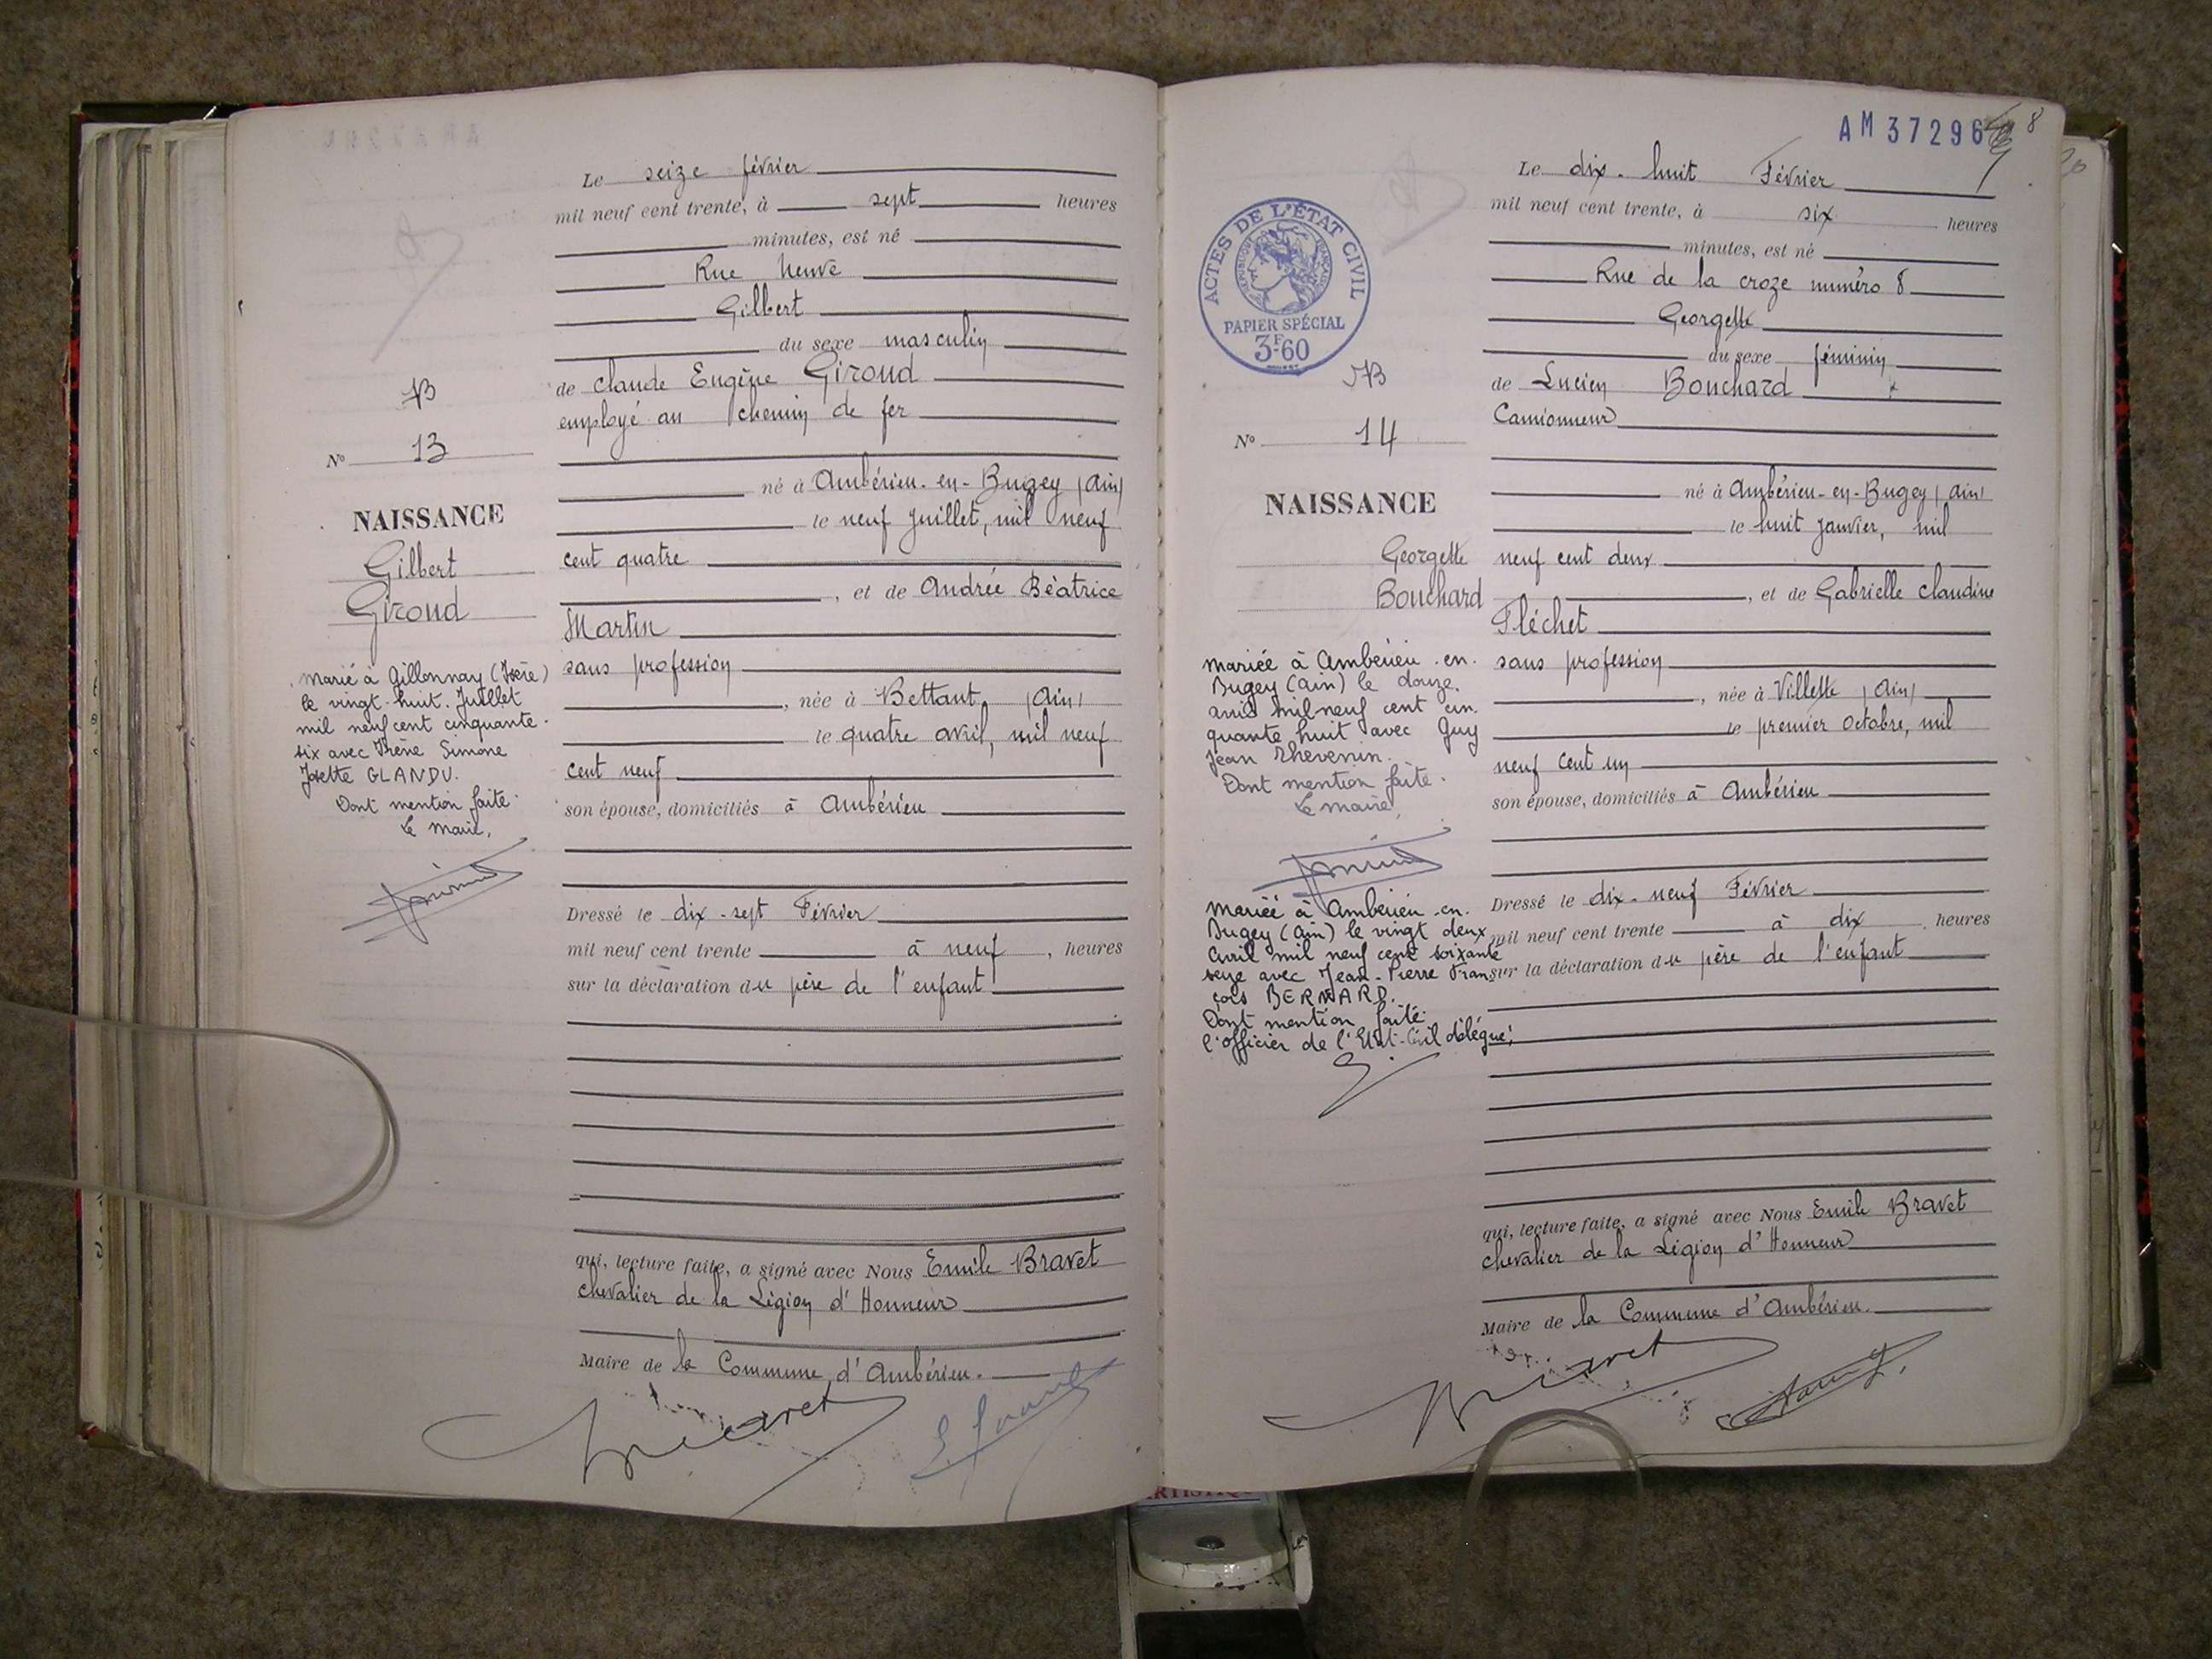 Le seize février
mil neuf cent trente, à sept heures
minutes, est né
Rue Neuve
Gilbert
du sexe masculin
de Claude Eugène Giroud
employé au chemin de fer
né à Ambérieu-en-Bugey (Ain)
le neuf Juillet, mil neuf
cent quatre
, et de Andrée Béatrice
Martin
sans profession
, née à Bettant (Ain)
le quatre avril, mil neuf
cent neuf
son épouse, domiciliés à Ambérieu
Dressé le dix-sept Février
mil neuf cent trente à neuf, heures
sur la déclaration du père de l'enfant
qui, lecture faite, a signé avec Nous Emile Bravet
chevalier de la Légion d'Honneur
Maire de la Commune d'Ambérieu.
No 13
NAISSANCE
Gilbert
Giroud
Marié à Gillonnay (Isère)
le vingt-huit Juillet
mil neuf cent cinquante-
six avec Irène Simone
Josette GLANDU.
Dont mention faite.
Le Maire,
AM 37296
8
Le dix-huit Février
mil neuf cent trente, à six heures
minutes, est né
Rue de la croze numéro 8
Georgette
du sexe féminin
de Lucien Bouchard
Camionneur
né à Ambérieu-en-Bugey (Ain)
le huit Janvier, mil
neuf cent deux
, et de Gabrielle Claudine
Fléchet
sans profession
, née à Villette (Ain)
le premier Octobre, mil
neuf cent un
son épouse, domiciliés à Ambérieu
Dressé le dix-neuf Février
mil neuf cent trente à dix, heures
sur la déclaration du père de l'enfant
qui, lecture faite, a signé avec Nous Emile Bravet
chevalier de la Légion d'Honneur
Maire de la Commune d'Ambérieu.
ACTES DE L'ÉTAT CIVIL
RÉPUBLIQUE FRANÇAISE
PAPIER SPÉCIAL
3F60
No 14
NAISSANCE
Georgette
Bouchard
Mariée à Ambérieu-en-
Bugey (Ain) le douze
avril mil neuf cent cin-
quante huit avec Guy
Jean Thevenin.
Dont mention faite.
Le maire,
Mariée à Ambérieu-en-
Bugey (Ain) le vingt deux
Avril mil neuf cent soixante
seize avec Jean-Pierre Fran-
çois BERNARD.
Dont mention faite.
l'officier de l'Etat-Civil délégué,